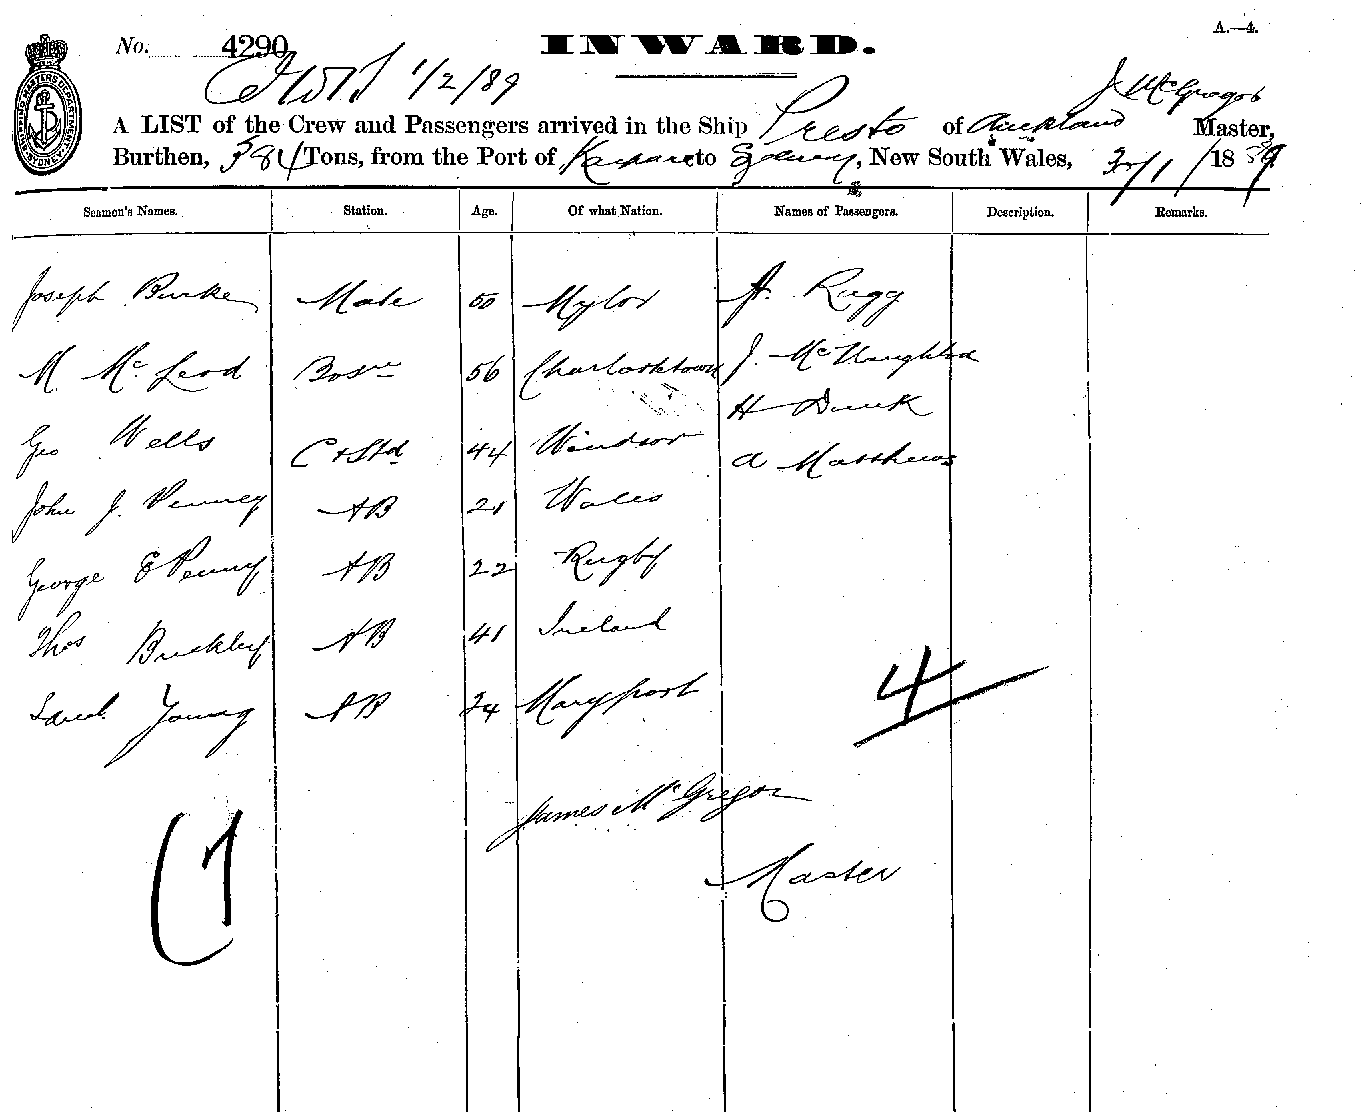 A.—4.
No. 4290 INWARD.
1/2/89
J McGregor
A LIST of the Crew and Passengers arrived in the Ship Presto of Auckland Master,
Burthen, 384 Tons, from the Port of Kaipara to Sydney, New South Wales, /1/1889
Seamen's Names. Station. Age. Of what Nation. Names of Passengers. Description. Remarks.
Joseph Burke Mate 50 Mylor A. Rugg
M McLeod Bosn 56 Charlottetown J. McNaughton
H Dunk
Geo Wells C & Std 44 Windsor A Matthews
John J. Penney AB 21 Wales
George E Penny AB 22 Rugby
Thos Buckley AB 41 Ireland
Young AB 24 Maryport
4
James McGregor
7
Master